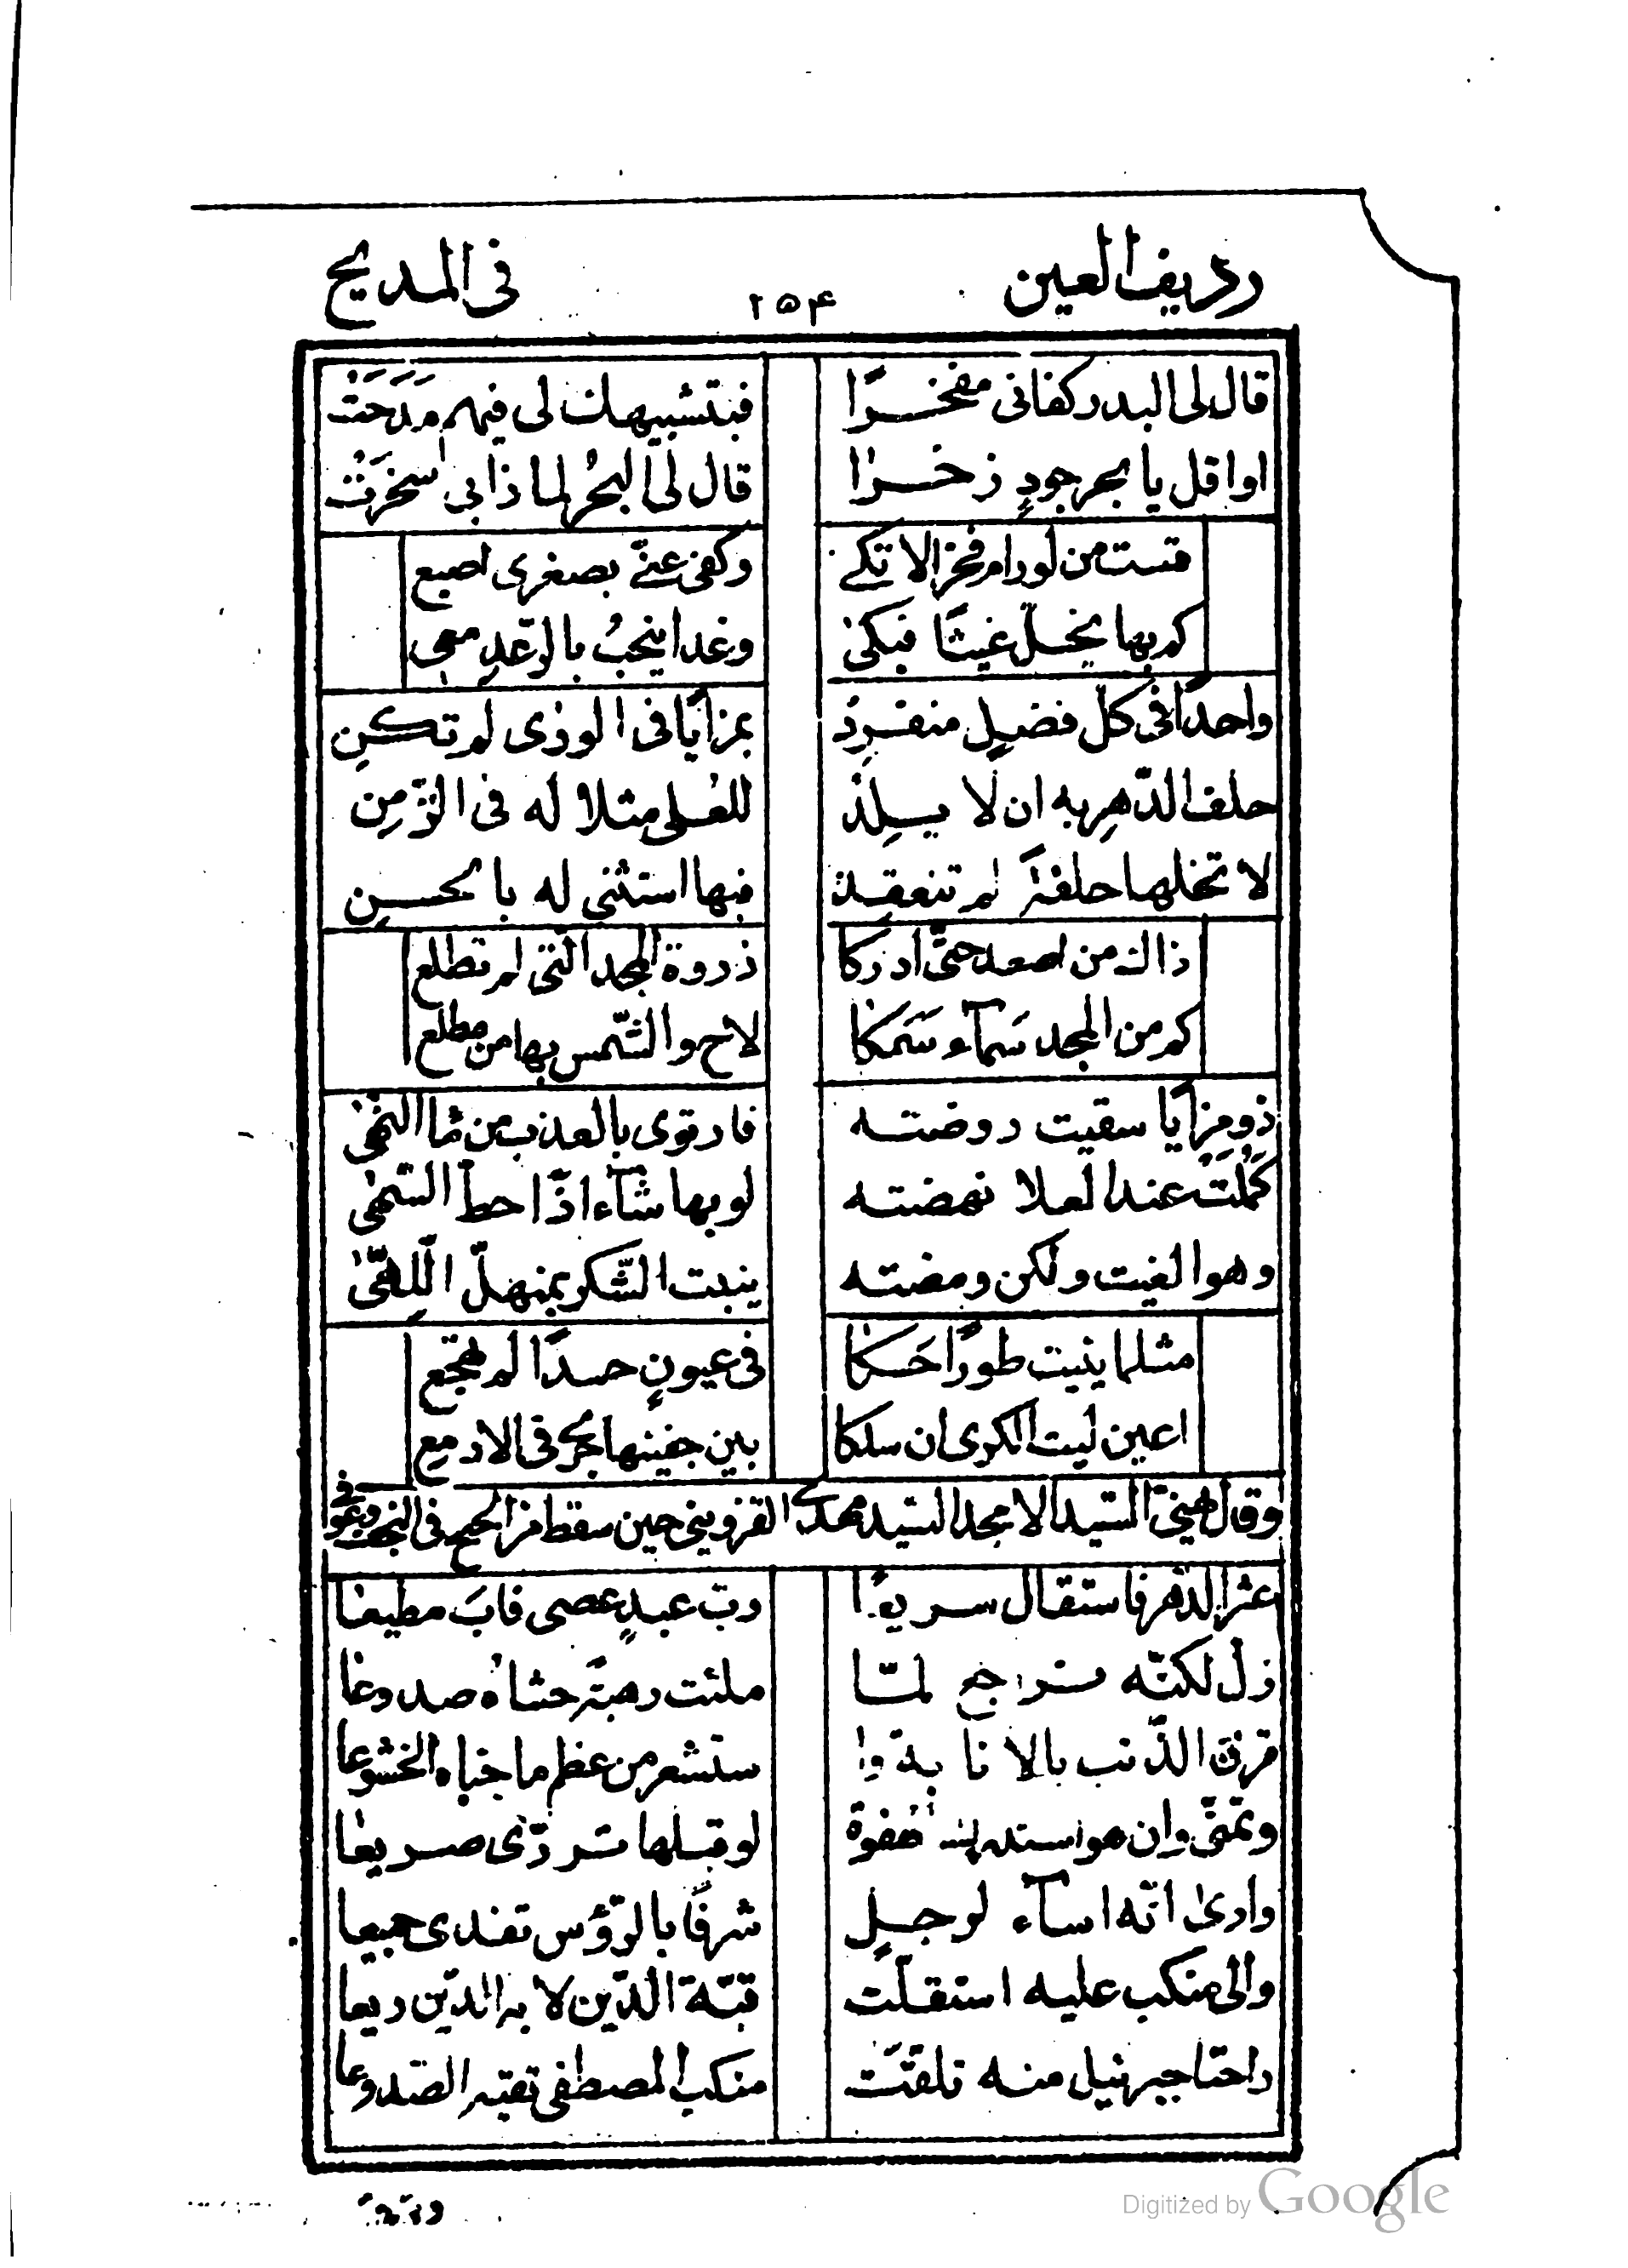 رديف العين ١٥۴ فى المديح
قال لى البدر كفانى مفخرًا فبتشبيهك لى فيهم مَدَحَتْ
او اقل يا بحر جودٍ زخرا قال لى البحُر لما ذا بى سخَرَتْ
قست من لو رام فخرا لا تكى وكفى عنّى بصغرى اصبع
كم بها بخّل غيثًا فبكى وغدا ينحبُ بالرّعدِ معى
واحدًا فى كلّ فضلٍ منفردِ بمزايًا فى الورٰى لم تكنِ
حلف الدّهرِ به ان لا يلِدْ للعُلى مثلا له فى الزّمنِ
لا تخلها حلفةً لم تنعقِدْ فبها استثنى له بالحسنِ
ذاك من اصعد حتّى ادركا ذروة المجد الّتى لم تطلع
كم من المجد سَمآء سَمَكا لاح والشّمس بها من مطلع
ذو مزايا سقيت روضته فارتوى بالعذب من مآ النّهٰى
كَمُلَتْ عند العلا نهضته لو بها شآء اذًا حطّ السّهٰى
وهو الغيث ولكن ومضته ينبت الشّكر بمنهلّ اللّهٰى
مثلما ينبت طورًا حَسَكا فى عيونٍ حسدًا لم تهجع
اعين ليت الكرى ان سلكا بين جفينها جرٰى فى الادمعِ
وقال يهنى السّيد الامجد السّيد مهدى القزوينى حين سقط من الحج فى النجف وعوفى
عثر الدّهر فاستقال سريعًا ربّ عبدٍ عصى فآبَ مطيعا
زلّ لكنّه تراجع لمّا ملئت رهبةً حشاه صدوعا
قرن الذّنب بالانابة وا ستشعر من عظم ما جناه الخشوعا
وتمنّى وان هو هفوة لو قبلها تردّى صريعا
وادرٰى انّه اسآء لرجلٍ شرفًا بالرّؤس تفدى جميعا
والى منكب عليه استقلّت قبّة الدّين لا به الدّين ريعا
راحتا جبرئيل منه تلقّت منكب المصطفى تقيه الصّدوعا
Digitized by Google